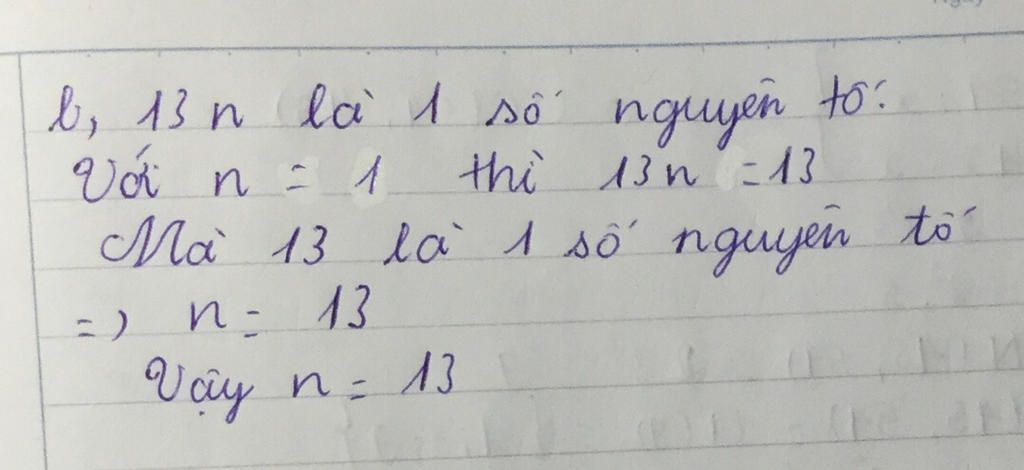 b, 13n là 1 số nguyên tố:
Với n = 1 thì 13n = 13
Mà 13 là 1 số nguyên tố
=) n = 13
Vậy n = 13